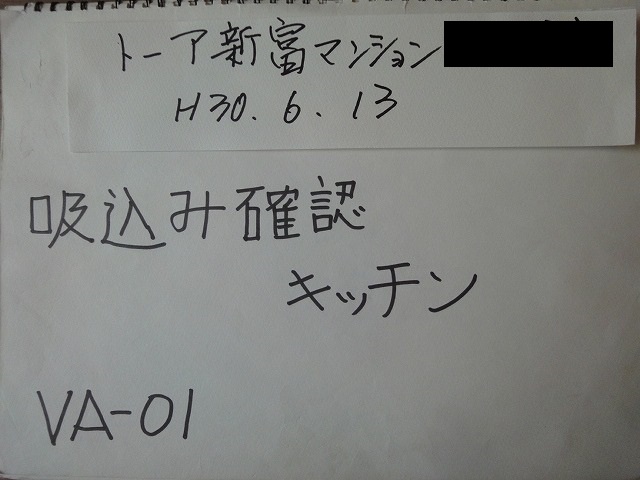 トーア新富マンション
H30.6.13
吸込み確認
キッチン
VA-01